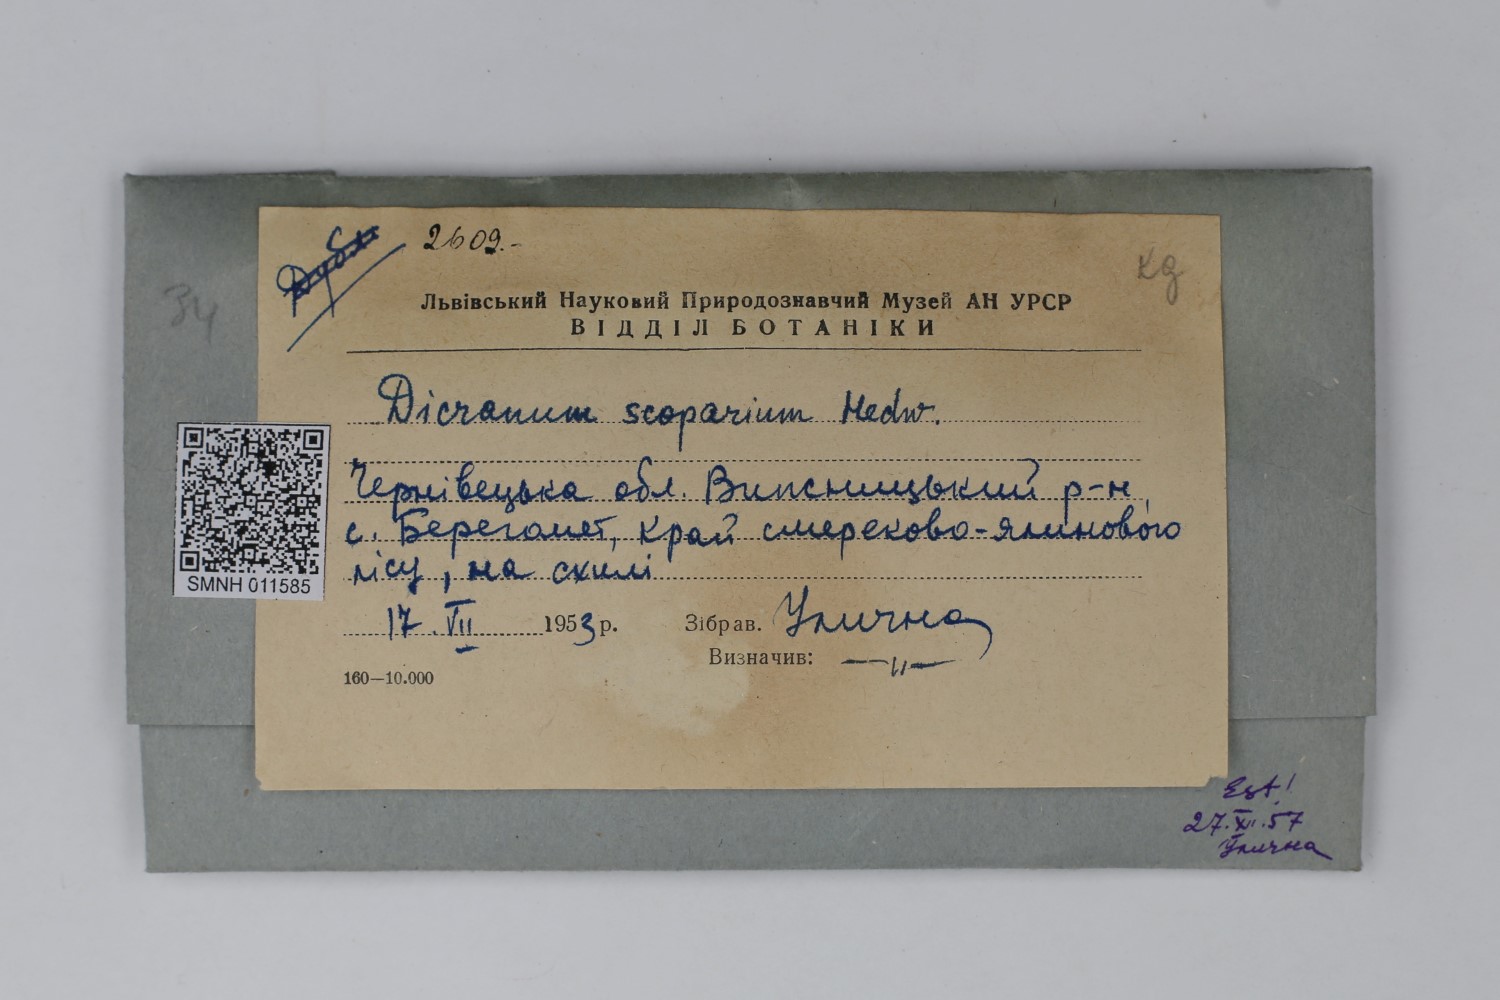 Дубл
2609.-
кд
34
Львівський Науковий Природознавчий Музей АН УРСР
ВІДДІЛ БОТАНІКИ
Dicranum scoparium Hedw.
Чернівецька обл. Вижницький р-н,
с. Берегомет, край смереково-ялинового
лісу, на схилі
SMNH 011585
17.VII 1953 р. Зібрав. Улична
Визначив: —"—
160—10.000
Est!
27.XI.57
Улична